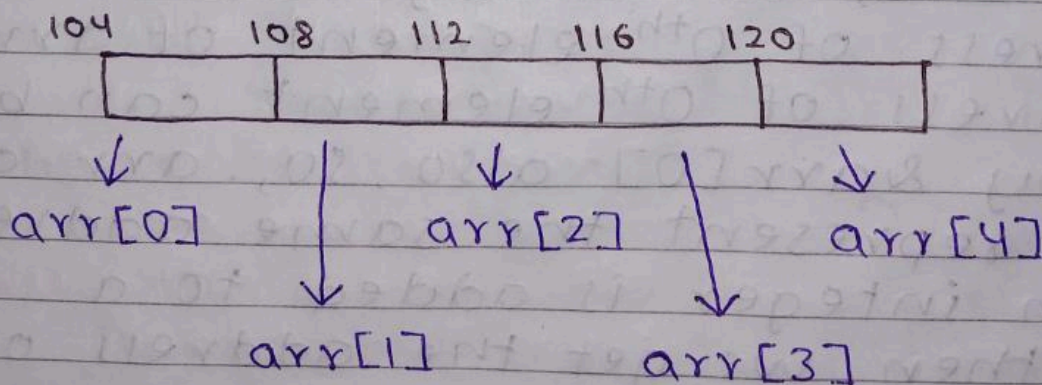 104 108 112 116 120
arr[0] arr[2] arr[4]
arr[1] arr[3]